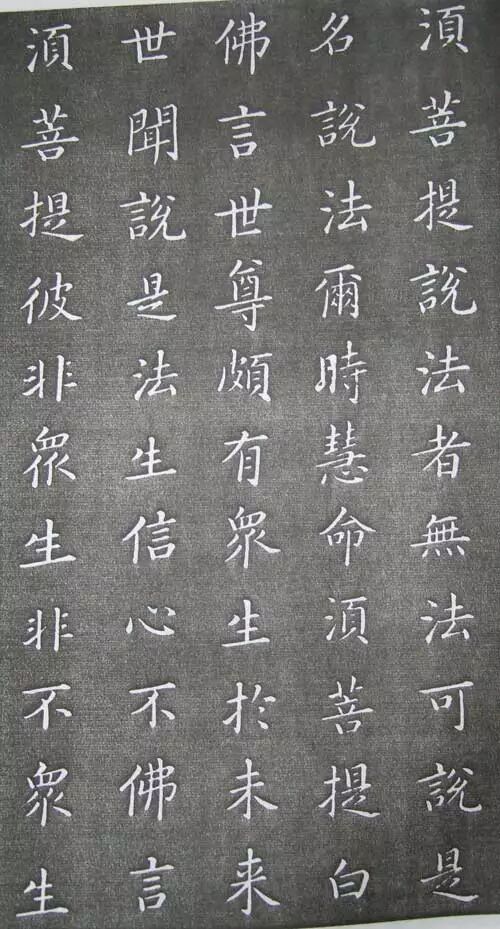 須菩提說法者無法可說是
名說法爾時慧命須菩提白
佛言世尊頗有衆生於未来
世聞說是法生信心不佛言
須菩提彼非衆生非不衆生